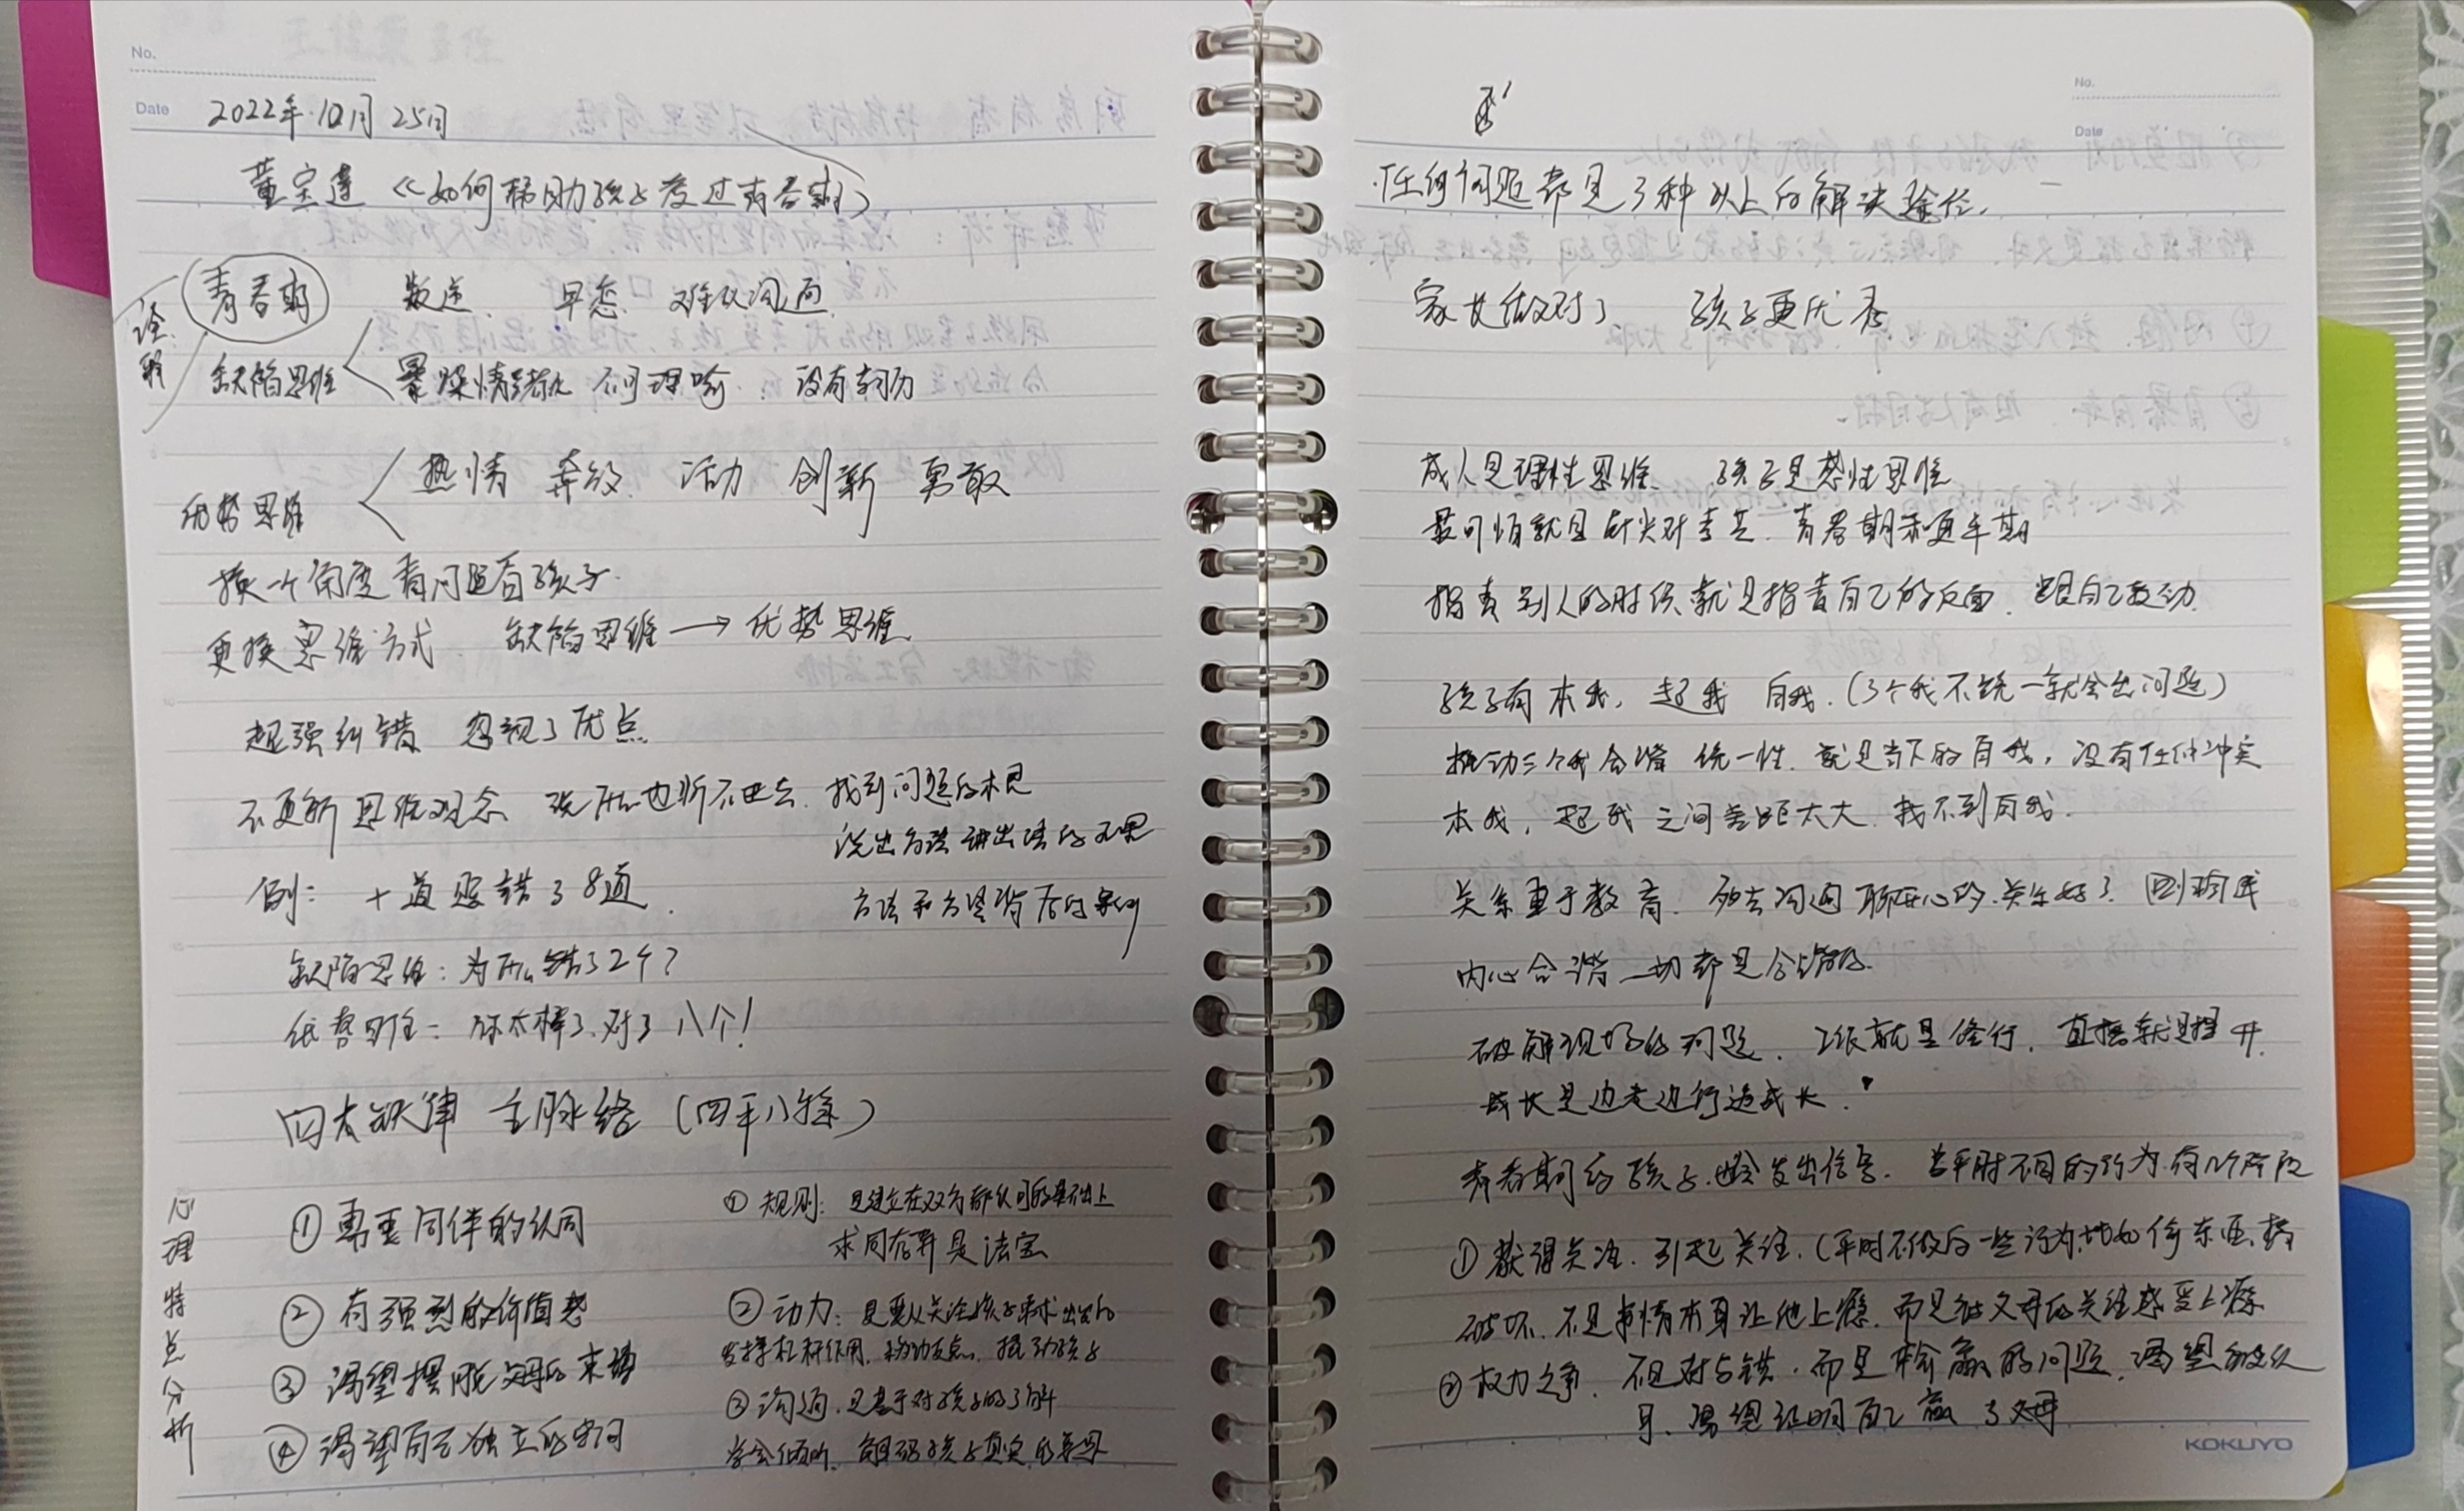 No.
Date 2022年10月25日
董宝莲《如何帮助孩子度过青春期》
诠释
青春期 叛逆 早恋 难以沟通
缺陷思维 暴躁情绪 不可理喻 没有动力
优势思维 热情 奔放 活力 创新 勇敢
换一个角度看问题看孩子
更换思维方式 缺陷思维→优势思维
超强纠错 忽视了优点
不更新思维观念 说什么也听不进去 找到问题的根
说出方法讲出法的
例: 十道题错了8道 方法和方法背后的案例
缺陷思维:为什么错了2个?
优势思维:你太棒了,对了八个!
四大铁律 主脉络(四平八稳)
心理特点分析
①需要同伴的认同
②有强烈的价值感
③渴望摆脱父母的束缚
④渴望自己独立的空间
①规则:是建立在双方都认可的基础上
求同存异是法宝
②动力:是要从关注孩子需求出发的
发挥杠杆作用,撬动支点,撬动孩子
③沟通,是基于对孩子的了解
学会倾听,解码孩子真实的意思
No.
Date
任何问题都是3种以上的解决途径.
家长做对了 孩子更优秀
成人是理性思维 孩子是感性思维
最可怕就是针尖对麦芒 青春期和更年期
指责别人的时候就是指责自己的反面 跟自己较劲
孩子有本我,超我 自我.(3个我不统一就会出问题)
推动三个我合谐 统一性 就是当下的自我,没有任何冲突
本我,超我之间差距太大 找不到自我.
关系重于教育. 沟通 聊开心的,关系好了
内心合谐一切都是合谐的.
破解现场的问题, 就是修行, 直接就是提升.
成长是边走边行边成长.
青春期的孩子,也会发出信号. 与平时不同的行为,有几个阶段
①获得关注.引起关注.(平时不做的一些行为,比如偷东西,搞
破坏,不是事情本身让他上瘾,而是被父母的关注感受上瘾
②权力之争, 不是对与错.而是输赢的问题,渴望被认
可,渴望证明自己赢了父母
KOKUYO